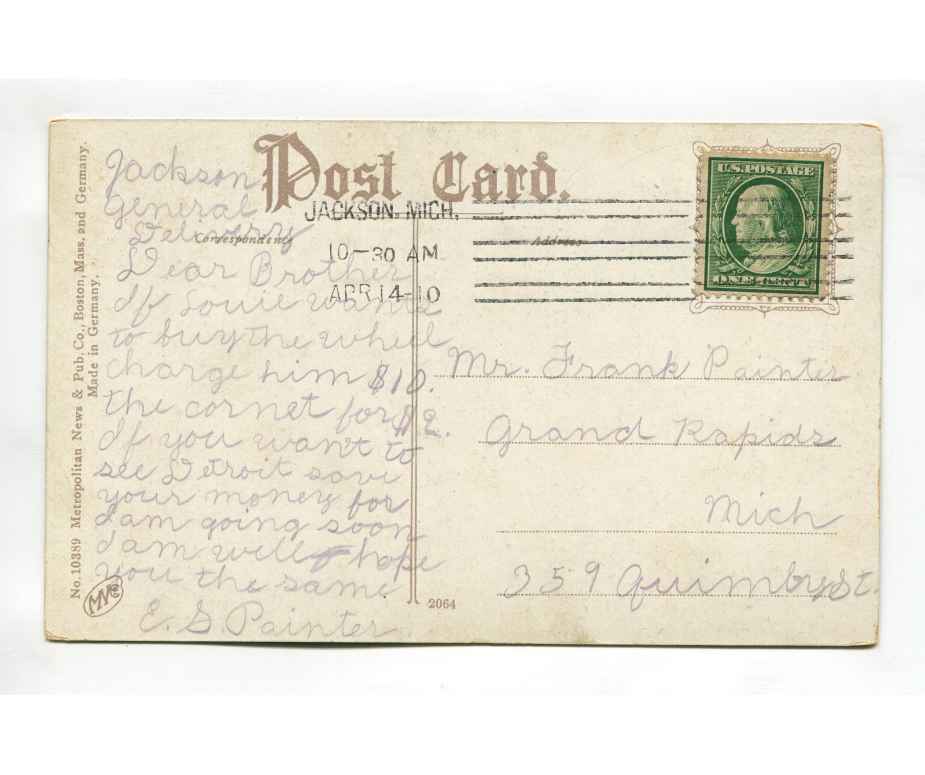 Post Card.
JACKSON. MICH.
10-30 AM
APR 14-10
Correspondence
Address
U.S. POSTAGE
ONE CENT
No. 10389 Metropolitan News & Pub. Co., Boston, Mass. and Germany.
Made in Germany.
Jackson
General
Delivery
Dear Brother
If Louie wants
to buy the wheel
charge him $10.
the cornet for $2.
If you want to
see Detroit save
your money for
I am going soon
I am well hope
you the same
E. S Painter
Mr. Frank Painter
Grand Rapids
Mich
359 Quimby St.
2064